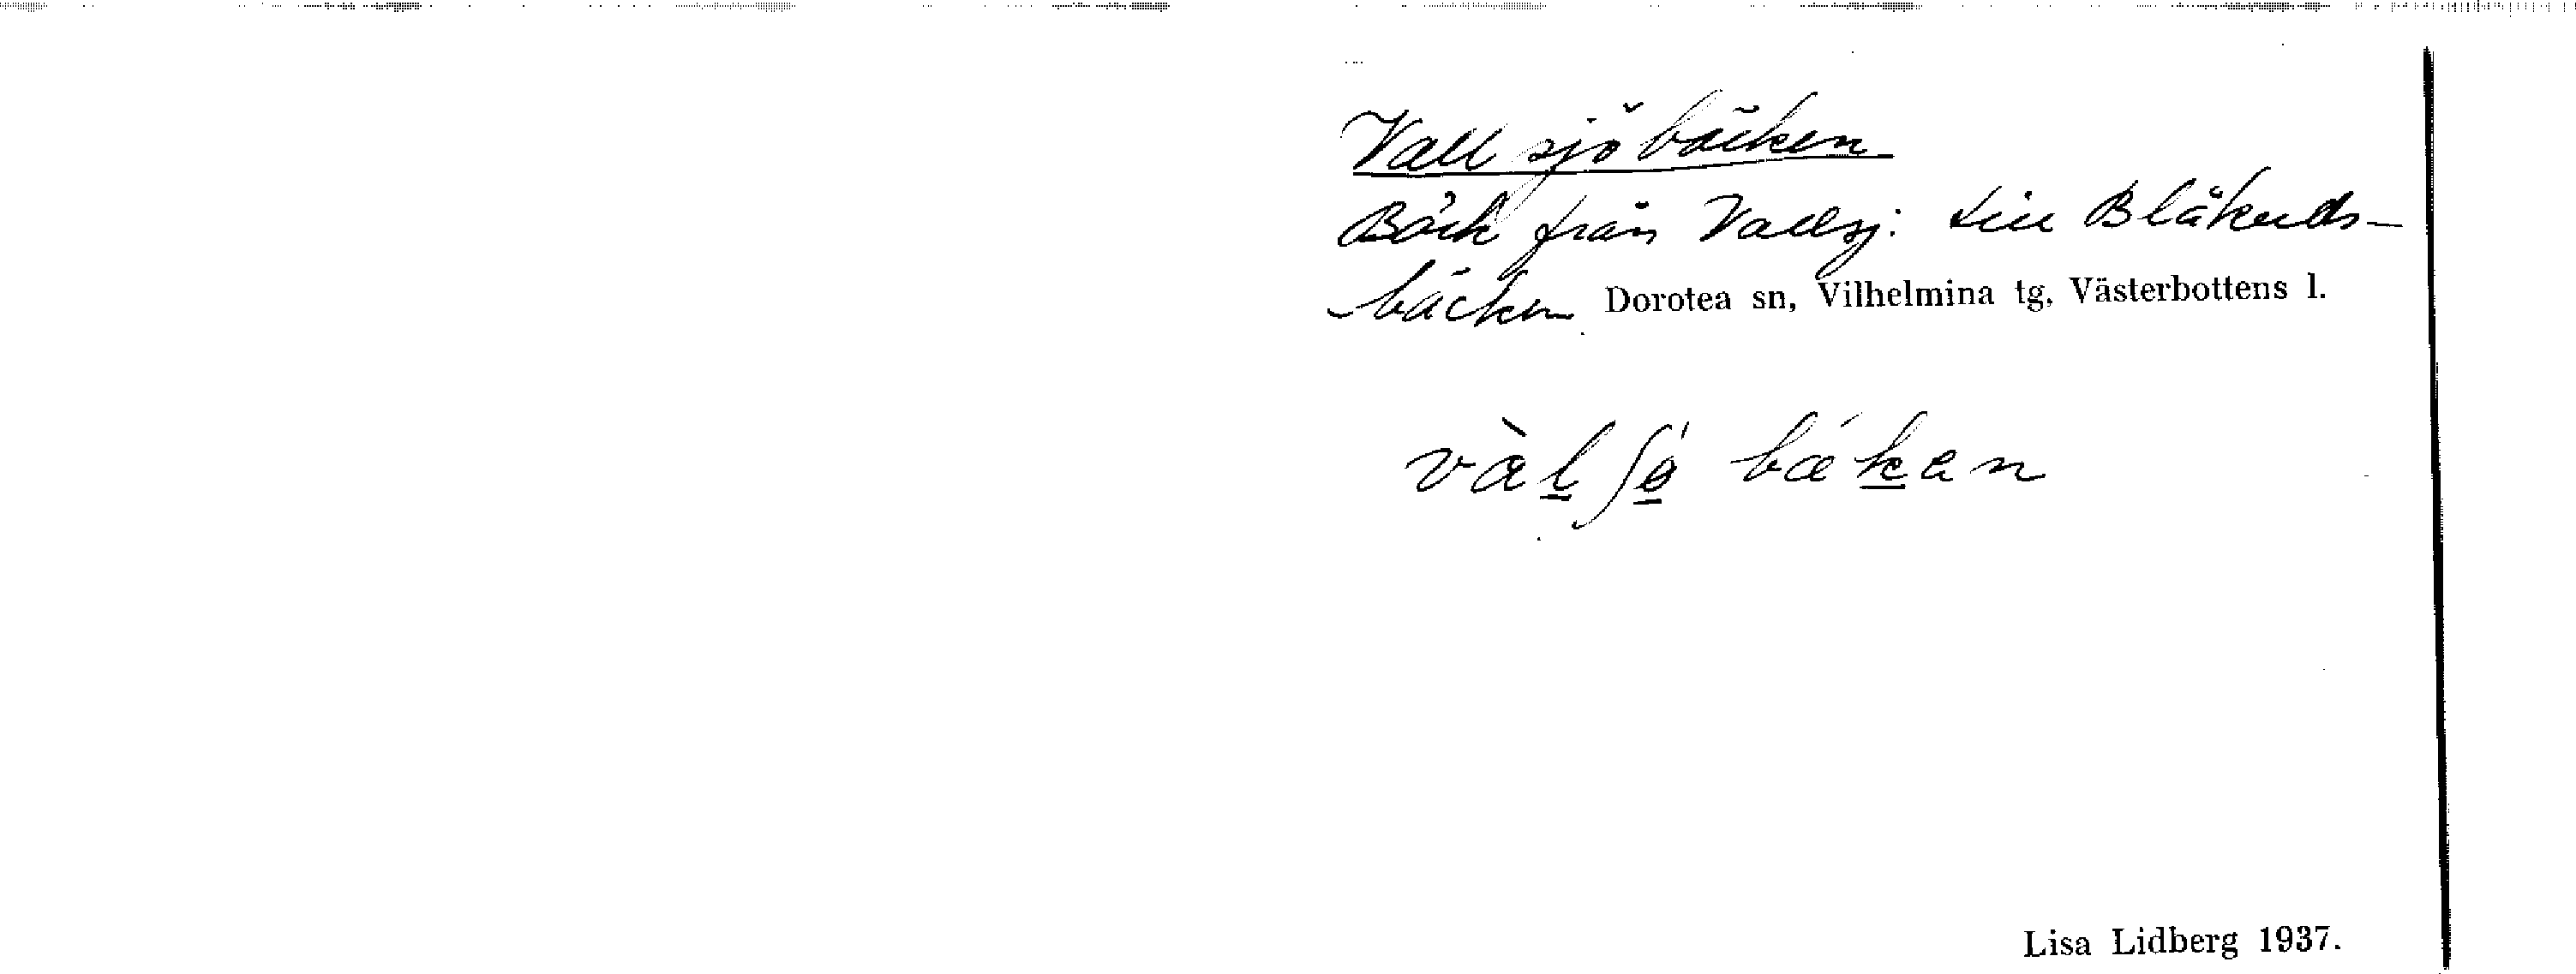 Vallsjöbäcken
Bäck från Vallsj: till Blåkulls-
bäcken Dorotea sn, Vilhelmina tg, Västerbottens l.
vàl̲ʃǿ̲ bæ´k̲en
Lisa Lidberg 1937.